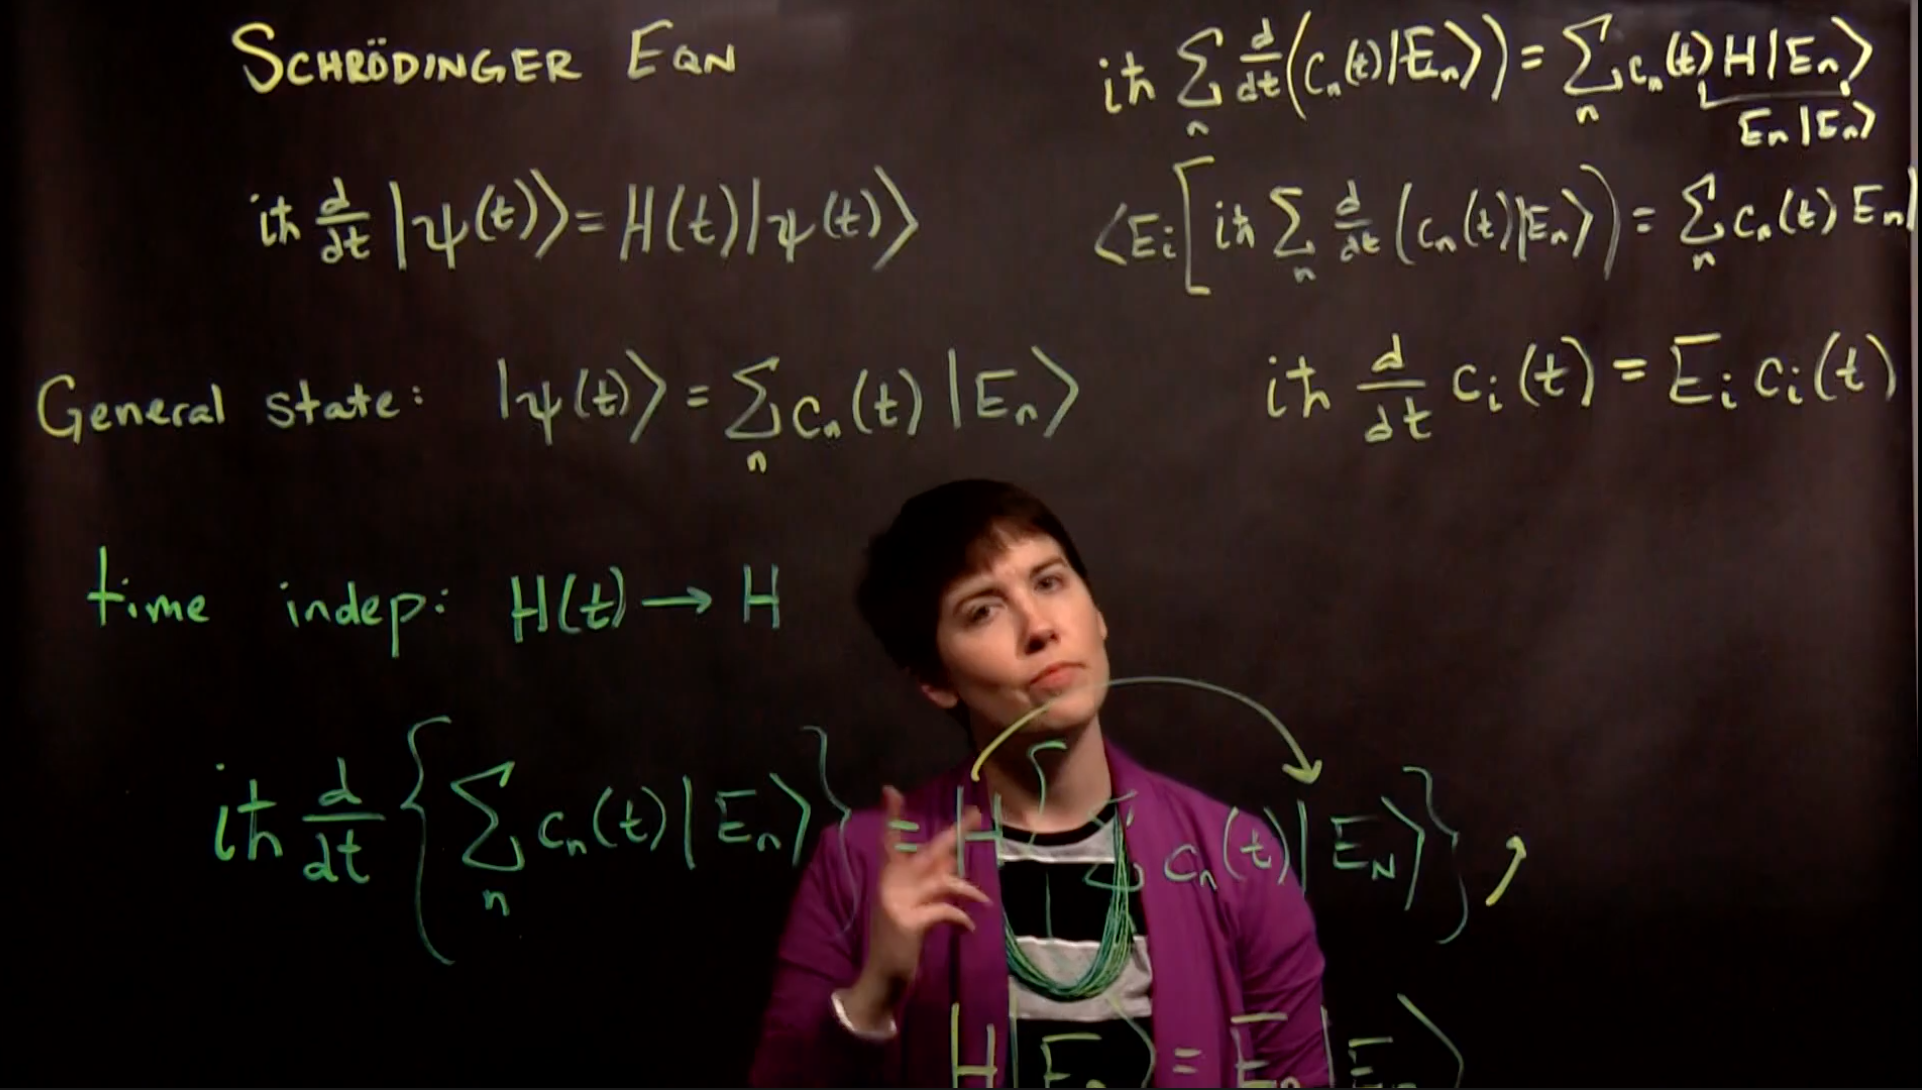 SCHRÖDINGER EQN
iħ d/dt |ψ(t)⟩ = H(t)|ψ(t)⟩
General state: |ψ(t)⟩ = Σ_n c_n(t) |E_n⟩
time indep: H(t) → H
iħ d/dt { Σ_n c_n(t)|E_n⟩ } = H { Σ c_n(t)|E_N⟩ },
H|E_n⟩ = E_n|E_n⟩
iħ Σ_n d/dt (c_n(t)|E_n⟩) = Σ_n c_n(t) H|E_n⟩
E_n|E_n⟩
⟨E_i [ iħ Σ_n d/dt (c_n(t)|E_n⟩) = Σ_n c_n(t) E_n|
iħ d/dt c_i(t) = E_i c_i(t)